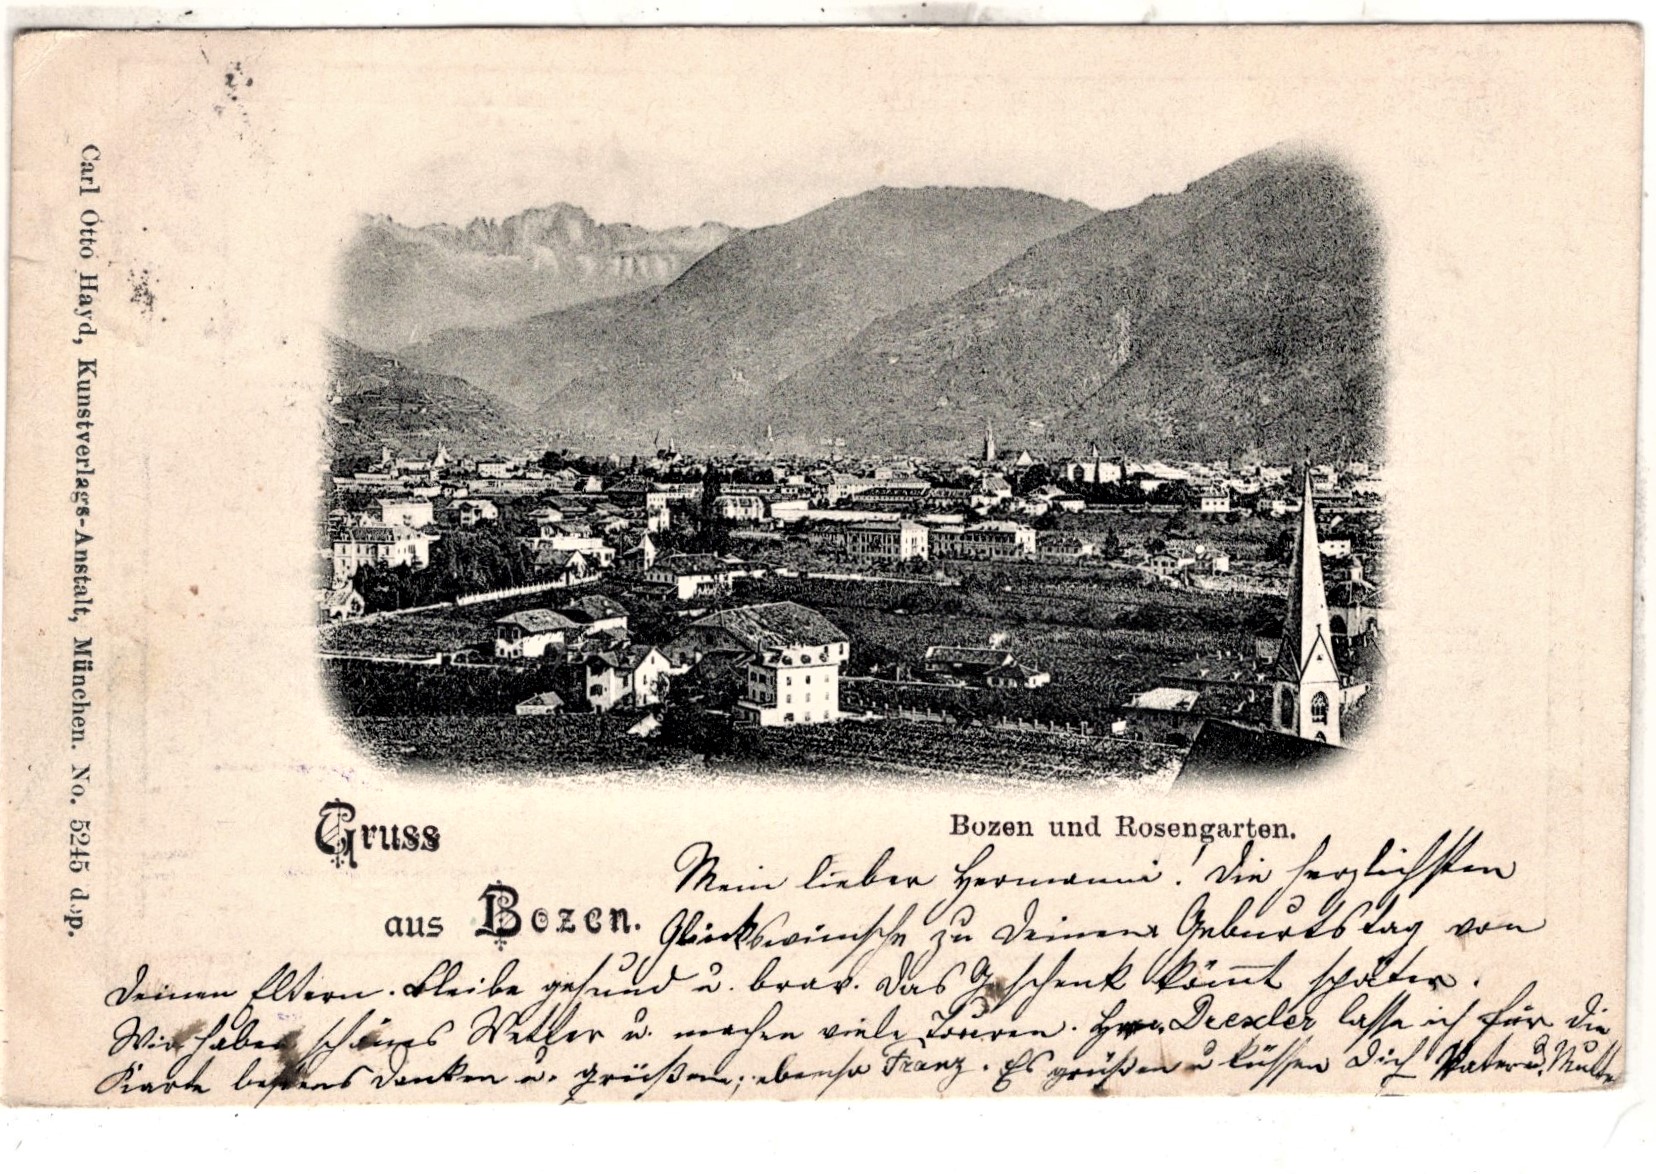 Carl Otto Hayd, Kunstverlags-Anstalt, München. No. 5245 dep.
Gruss
aus Bozen.
Bozen und Rosengarten.
Mein lieber Hermann! Die herzlichsten
Glückswünsche zu Deinem Geburtstag von
Deinen Eltern. Bleibe gesund u. brav. Das Geschenk kom̅t später.
Wir haben schönes Wetter u. machen viele Touren. Hrn. Drexler lasse ich für die
Karte bestens danken u. grüßen; ebenso Franz. Es grüßen u küssen Dich Vater u. Mutter